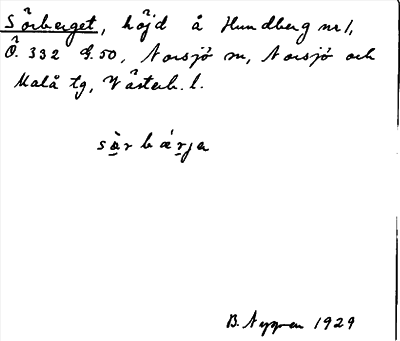 Sörberget, höjd å Hundberg nr 1,
Ö. 332 G. 50, Norsjö sn, Norsjö och
Malå tg, Västerb. l.
sàrbárja
B. Nygren 1929